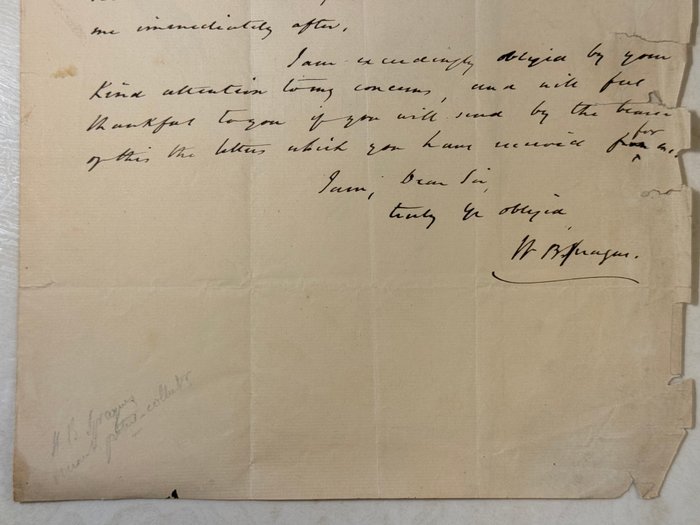 me immediately after.
I am exceedingly obliged by your
Kind attention to my concerns, and will feel
thankful to you if you will send by the bearer
of this the letters which you have received for me.
I am, Dear Sir,
truly yr obliged
W B Sprague.
W. B. Sprague
collector